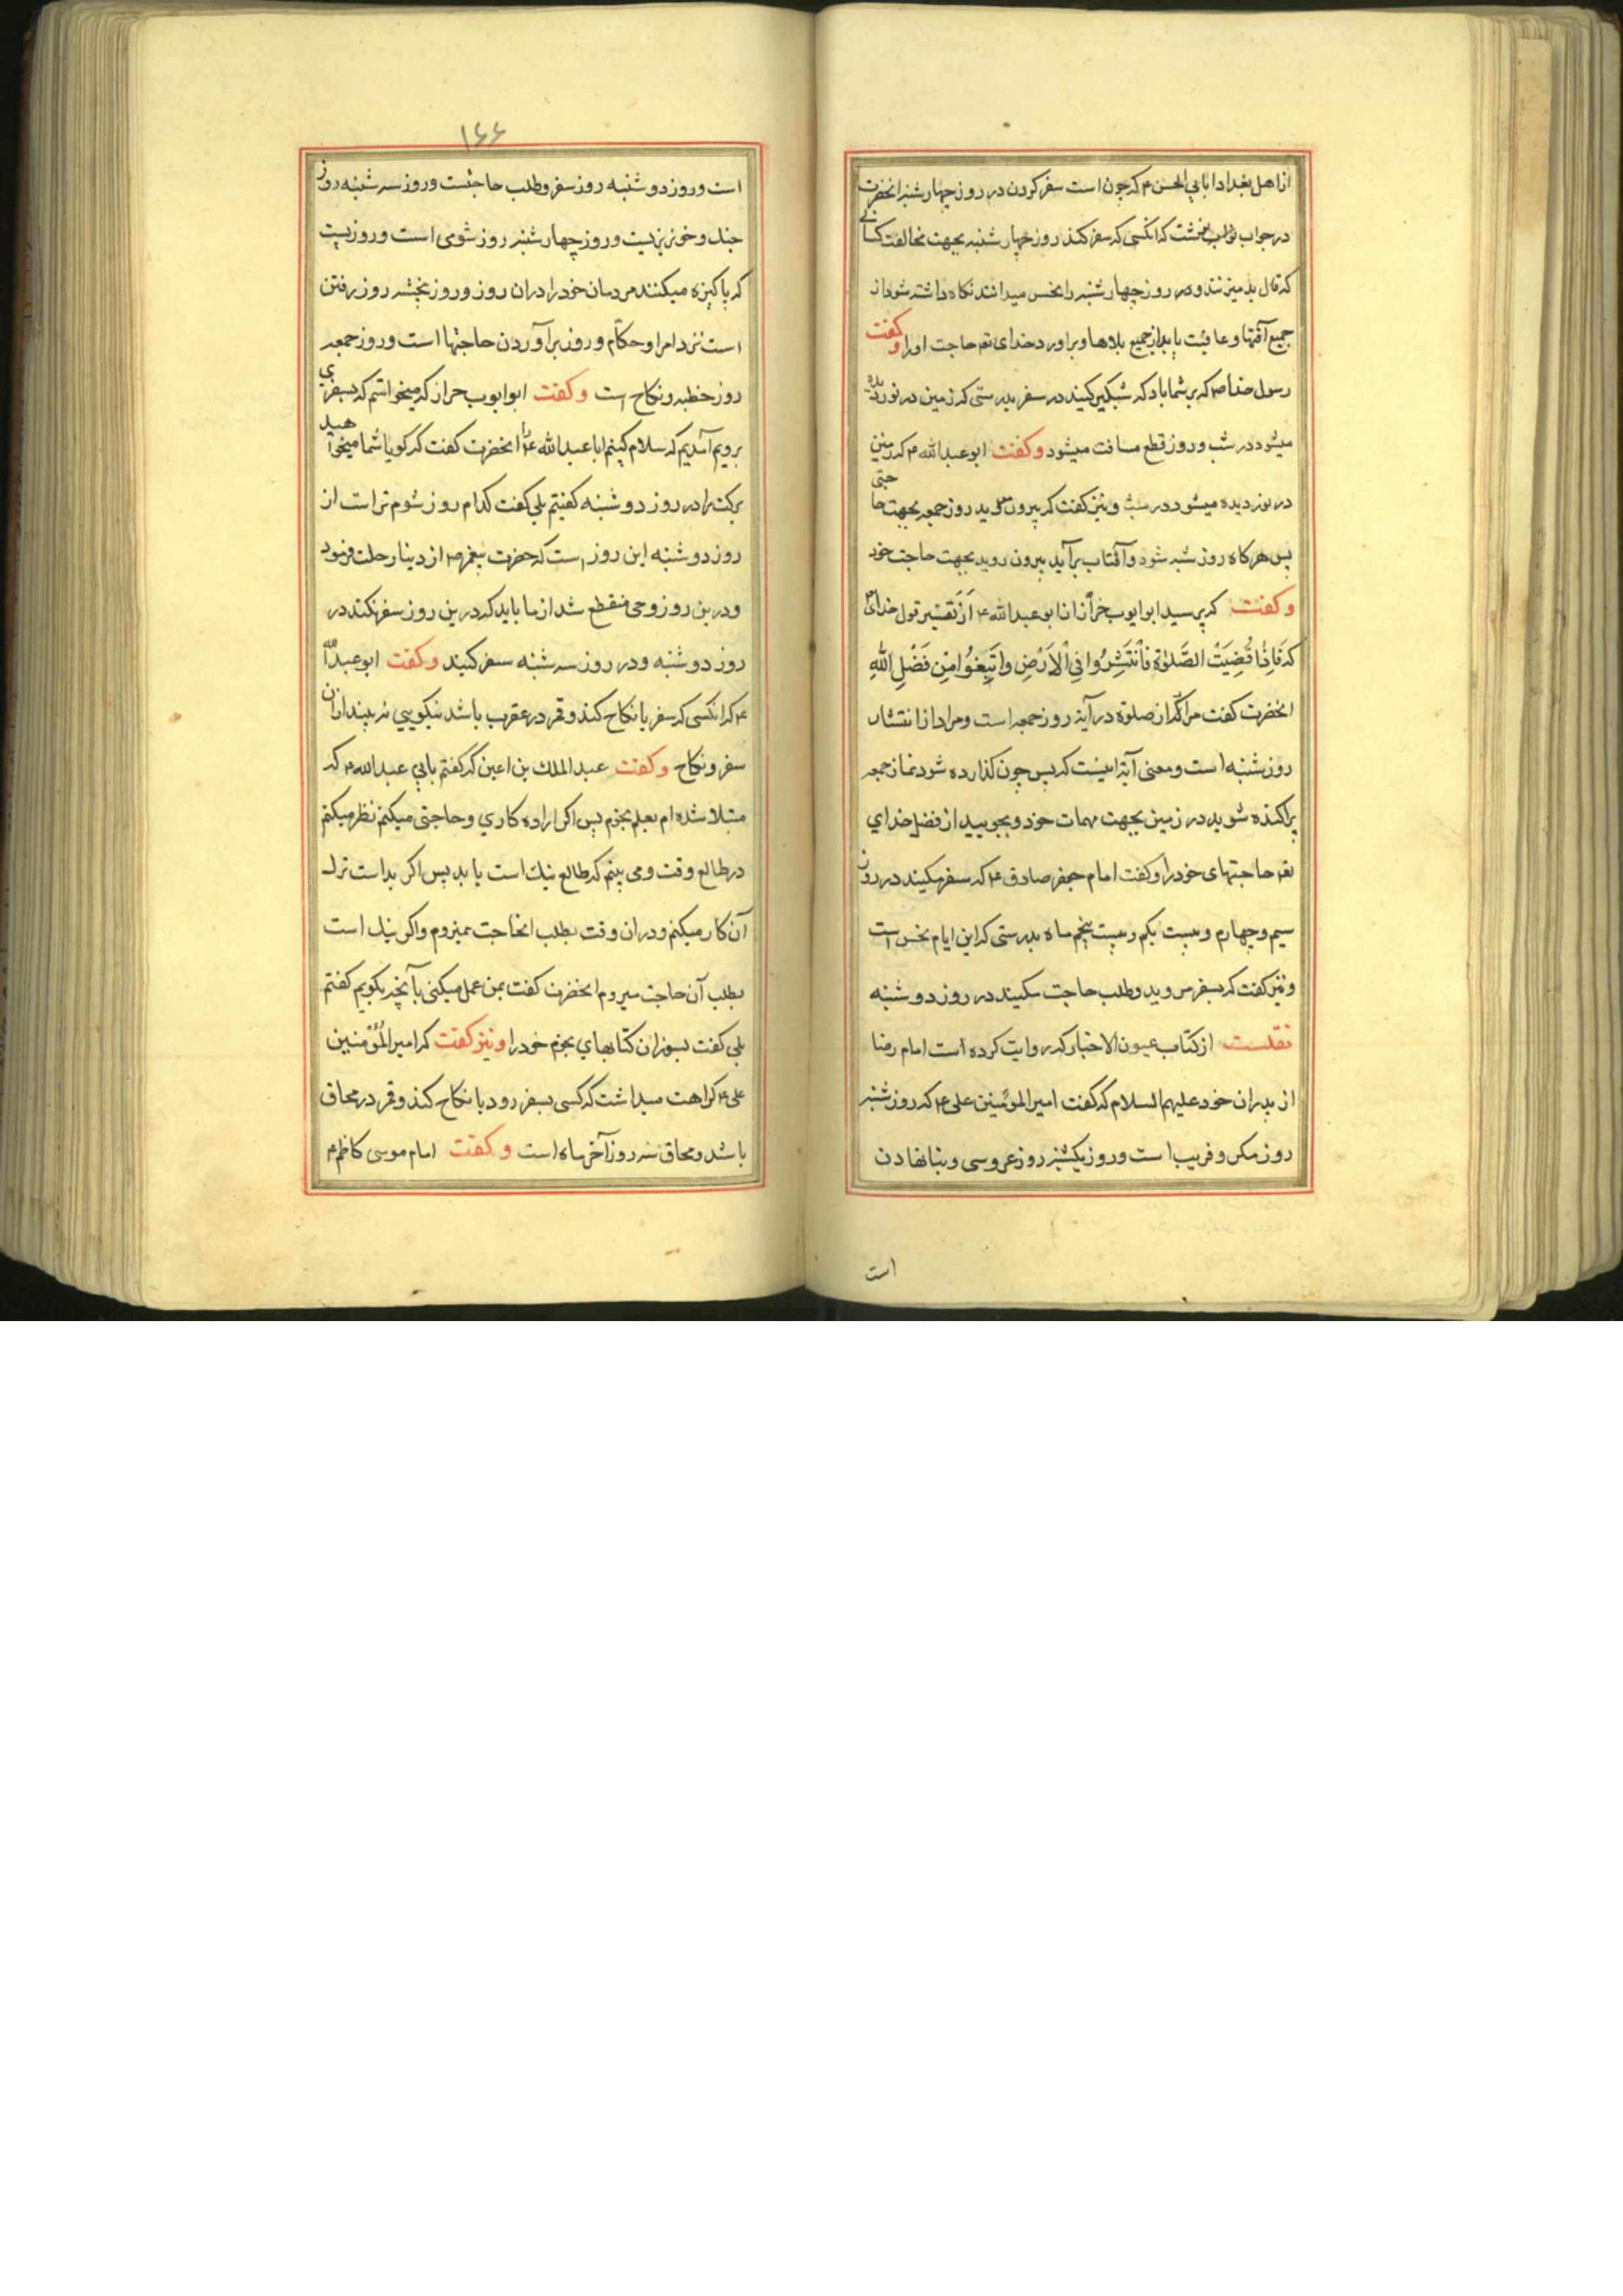 از اهل بغداد ابا بی الحسن ۴ که چون است سفر کردن در روز چهارشنبه انحضرت
در جواب نوشت که انکسی که سفر کند روز چهارشنبه بجهت مخالفت کسانی
که فال بد میزنند و در روز چهارشنبه را نحس میدانند نکاه داشته شود از
جمیع آفتها و عافیت یابد از جمیع بلاها و براورد خدای تعه حاجت اورا وکفت
رسول خدا ص که بر شما باد که شبکیر کنید در سفر بدرستی که زمین در نوردیده
میشود در شب و روز قطع مسافت میشود وکفت ابو عبدالله ۴ که زمین
در نوردیده میشود در شب و نیز کفت که بیرون مروید روز جمعه بجهت حاجتی
پس هرکاه روز شنبه شود و آفتاب برآید بیرون روید بجهت حاجت خود
وکفت که پرسید ابو ایوب خرّاز از ابو عبدالله ۴ از تفسیر قول خدای
که فَاِذَا قُضِیَتُ الصَّلوٰةُ فَانْتَشِرُوا فِی الْاَرْضِ وابْتَغُوا مِنْ فَضْلِ اللهِ
انحضرت کفت مراد از صلوة در آیه روز جمعه است ومراد از انتشار
روز شنبه است و معنی آیه اینست که پس چون کذارده شود نماز جمعه
پراکنده شوید در زمین بجهت مهمات خود و بجویید از فضل خدای
تعه حاجتهای خود را وکفت امام جعفر صادق ۴ که سفر مکنید در روز
سیم و چهارم و بیست یکم و بیست پنجم ماه بدرستی که این ایام نحس است
و نیز کفت که بسفر مروید و طلب حاجت مکنید در روز دوشنبه
نقلست از کتاب عیون الاخبار که روایت کرده است امام رضا
از پدران خود علیهم السلام که کفت امیر المؤمنین علی ۴ که روز شنبه
روز مکر و فریب است و روز یکشنبه روز عروسی و بنا نهادن
است
۱۶۶
است و روز دوشنبه روز سفر و طلب حاجتست و روز سه شنبه روز
جنک و خونریزیست و روز چهارشنبه روز شومی است و روزیست
که پاکیزه میکنند مردمان خود را دران روز و روز پنجشنبه روز رفتن
است نزد امرا و حکّام و روز برآوردن حاجتها است و روز جمعه
روز خطبه و نکاح است وکفت ابو ایوب خراز که میخواستم که بسفری
برویم آمدیم که سلام کنیم ابا عبدالله ۴ را انحضرت کفت که کویا شما میخواهید
برکت را در روز دوشنبه کفتیم بلی کفت کدام روز شوم تر است از
روز دوشنبه این روز است که حضرت پیغمبر ص از دینا رحلت فرمود
و درین روز وحی منقطع شد از ما باید که درین روز سفر نکند در
روز دوشنبه و در روز سه شنبه سفر کنید وکفت ابو عبدالله
۴ که انکسی که سفر یا نکاح کند و قمر در عقرب باشد نیکویی نه بیند ازان
سفر و نکاح وکفت عبدالملک بن اعین که کفتم بابی عبدالله ۴ که
مبتلا شده ام بعلم نجوم پس اکر اراده کاری و حاجتی میکنم نظر میکنم
در طالع وقت و می بینم که طالع نیک است یا بد پس اکر بد است ترک
آن کار میکنم و دران وقت بطلب انحاجت نمیروم و اکر نیک است
بطلب آن حاجت میروم انحضرت کفت بمن عمل میکنی بآنچه بکویم کفتم
بلی کفت بسوزان کتابهای نجوم خود را ونیز کفت که امیر المؤمنین
علی ۴ کراهت میداشت که کسی بسفر رود یا نکاح کند و قمر در محاق
باشد و محاق سه روز آخر ماه است وکفت امام موسی کاظم ۴